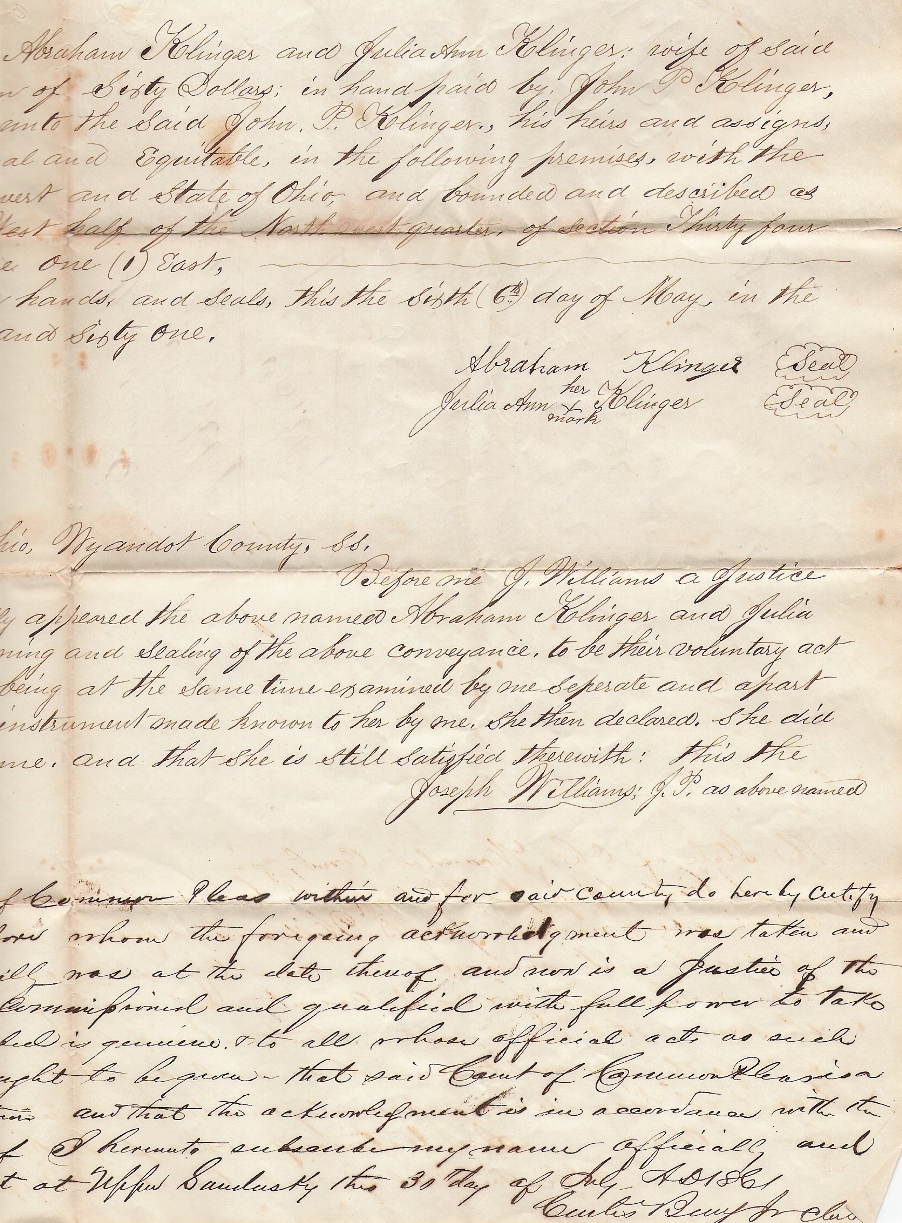 Abraham Klinger and Julia Ann Klinger: wife of said
of Sixty Dollars; in hand paid by, John P Klinger,
unto the said John. P. Klinger., his heirs and assigns,
al and Equitable, in the following premises, with the
wert and State of Ohio, and bounded and described as
West half of the North west quarter, of section Thirty four
e one (1) East,
hands, and seals, this the sixth (6th) day of May, in the
and sixty one.
Abraham Klinger Seal
her
Julia Ann x Klinger Seal
mark
hio, Wyandot County, ss.
Before me J. Williams a Justice
ly appeared the above named Abraham Klinger and Julia
ning and sealing of the above conveyance, to be their voluntary act
being at the same time examined by me seperate and apart
instrument made known to her by me. she then declared. she did
me. and that she is still satisfied therewith: this the
Joseph Williams; J.P. as above named
f Common Pleas within and for said county do hereby certify
fore whom the foregoing acknowledgment was taken and
ill was at the date thereof and now is a Justice of the
Commissioned and qualified with full power to take
bed is genuine. & to all whose official acts as such
ught to be given - that said Court of Common Pleas is a
and that the acknowledgment is in accordance with the
f I hereunto subscribe my name officially and
t at Upper Sandusky this 30th day of July AD 1861
Curtis Berry Jr clerk